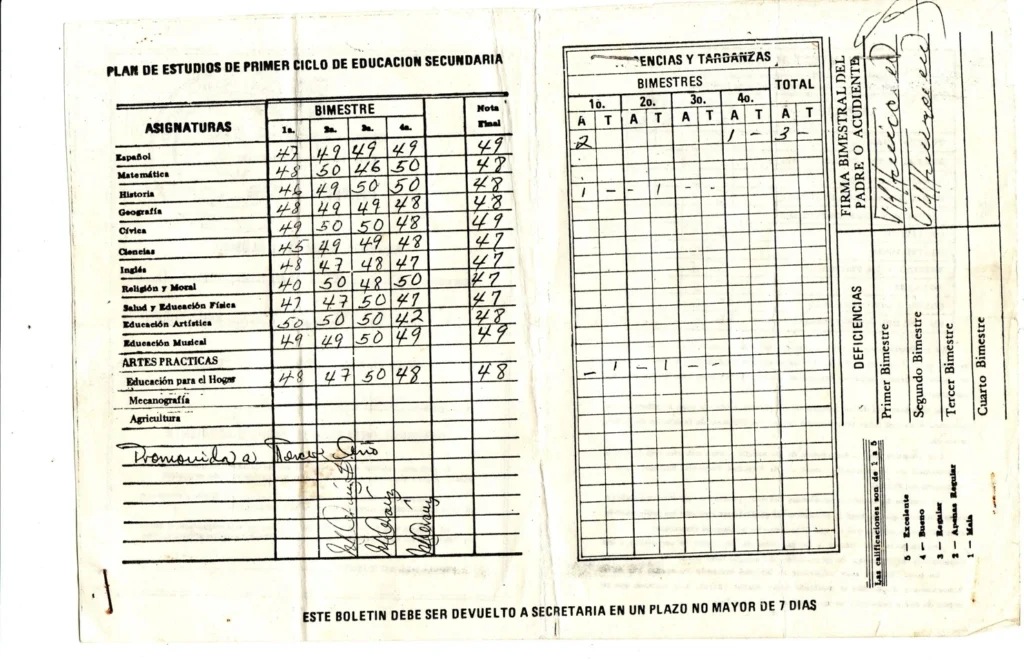 PLAN DE ESTUDIOS DE PRIMER CICLO DE EDUCACION SECUNDARIA
ASIGNATURAS BIMESTRE Nota Final
1a. 2a. 3a. 4a.
Español 47 49 49 49 49
Matemática 48 50 46 50 48
Historia 46 49 50 50 48
Geografía 48 49 49 48 48
Cívica 49 50 50 48 49
Ciencias 45 49 49 48 47
Inglés 48 47 48 47 47
Religión y Moral 40 50 48 50 47
Salud y Educación Física 47 47 50 47 47
Educación Artística 50 50 50 42 48
Educación Musical 49 49 50 49 49
ARTES PRACTICAS
Educación para el Hogar 48 47 50 48 48
Mecanografía
Agricultura
Promovida a Tercer Año
ENCIAS Y TARDANZAS
BIMESTRES TOTAL
1o. 2o. 3o. 4o.
A T A T A T A T A T
2 1 - 3 -
1 - - 1 - -
- 1 - 1 - -
FIRMA BIMESTRAL DEL
PADRE O ACUDIENTE
DEFICIENCIAS
Primer Bimestre
Segundo Bimestre
Tercer Bimestre
Cuarto Bimestre
Las calificaciones son de 1 a 5
5 — Excelente
4 — Bueno
3 — Regular
2 — Apenas Regular
1 — Mala
ESTE BOLETIN DEBE SER DEVUELTO A SECRETARIA EN UN PLAZO NO MAYOR DE 7 DIAS